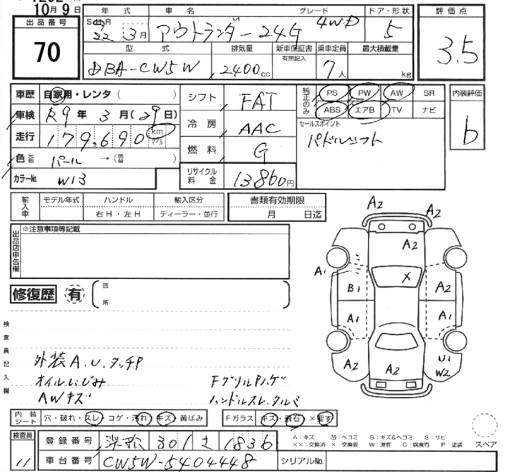 10月9日
年式 車名 グレード ドア・形状 評価点
出品番号
70
22年3月 アウトランダー24G 4WD 5
3.5
型式 排気量 新車保証書 乗車定員 最大積載量
有無記入
DBA-CW5W 2400cc 7人 kg
車歴 自家用・レンタ( ) シフト FAT 純正のみ PS PW AW SR 内装評価
車検 R9年3月(29日) 冷房 AAC ABS エアB TV ナビ b
走行 179,690 km 燃料 G セールスポイント
パドルシフト
色 パール→( ) リサイクル料金 13860円
カラーNo. W13
輸入車 モデル年式 ハンドル 輸入区分 書類有効期限
右H・左H ディーラー・並行 月 日迄
出品店申告欄 ※注意事項等記載
修復歴 有 箇所
検査員記入欄
外装A.U.タッチP
オイルにじみ
AWキズ
FグリルPハゲ
ハンドルスレ、タルミ
A2
A2 A2
A2
A1 X
B1 A2
A1 A1 A2
A2 U1
W2
A2
内装シート 穴・破れ・スレ・コゲ・汚れ・キズ・黄ばみ Fガラス キズ・飛石・×
検査員 11
登録番号 301 さ 1836
車台番号 CW5W-5404448 シリアルNo.
A:キズ 凹:ヘコミ B:キズ&ヘコミ S:サビ
スペア